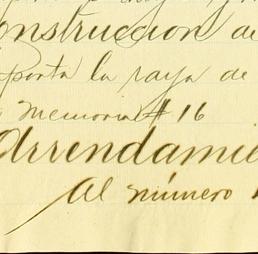 onstruccion de
porta la raya de
Memoria # 16
Arrendamie
Al número